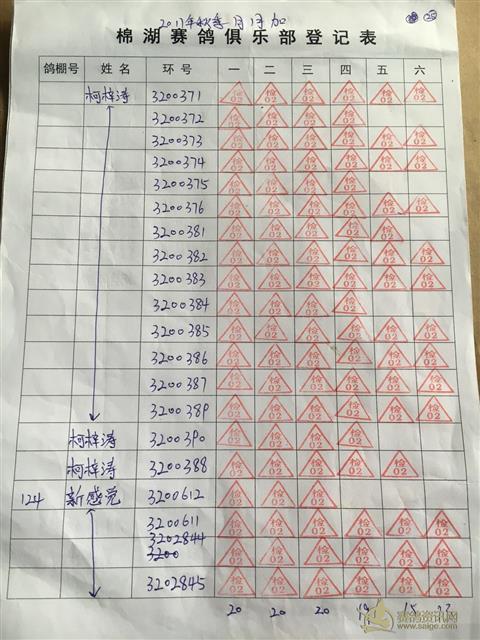 2017年秋季
棉湖赛鸽俱乐部登记表
鸽棚号 姓名 环号 一 二 三 四 五 六
柯梓涛 3200371 检02 检02 检02 检02 检02 检02
3200372 检02 检02 检02 检02
3200373 检02 检02 检02 检02 检02 检02
3200374 检02 检02 检02 检02 检02 检02
3200375 检02 检02 检02 检02
3200376 检02 检02 检02 检02 检02 检02
3200381 检02 检02 检02 检02 检02
3200382 检02 检02 检02 检02 检02 检02
3200383 检02 检02 检02 检02 检02 检02
3200384 检02 检02 检02 检02
3200385 检02 检02 检02 检02 检02 检02
3200386 检02 检02 检02 检02 检02 检02
3200387 检02 检02 检02 检02 检02 检02
3200389 检02 检02 检02 检02 检02 检02
柯梓涛 3200390 检02 检02 检02 检02
柯梓涛 3200388 检02 检02 检02 检02 检02
124 新感觉 3200612 检02 检02 检02
3200611 检02 检02 检02 检02 检02 检02
3202844
3200 检02 检02 检02 检02 检02 检02
3202845 检02 检02 检02 检02 检02 检02
20 20 20 19 15
赛鸽资讯网
www.saige.com